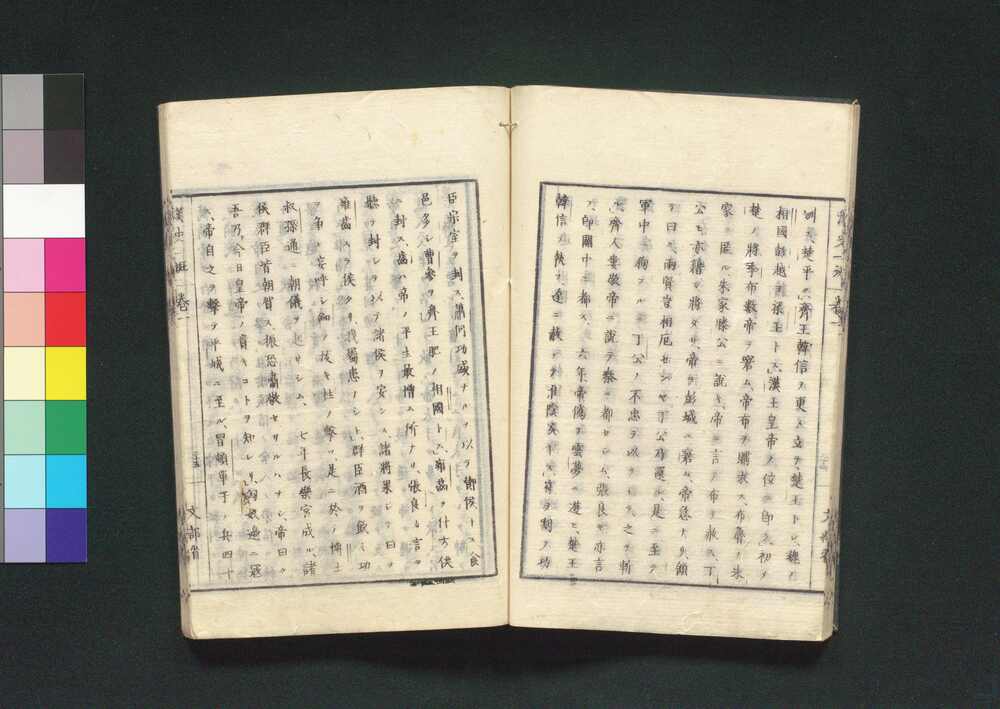 楚平ク、齊王韓信ヲ更メ立テ楚王トシ、魏ノ
相國彭越ヲ梁王トス、漢王皇帝ノ位ニ即ク、初メ
楚ノ將季布數帝ヲ窘ム、帝布ヲ購求ス、布魯ノ朱
家ニ匿ル、朱家滕公ニ說キ、帝ニ言テ布ヲ赦ス、丁
公モ亦楚ノ將タリ、帝ヲ彭城ニ窘ム、帝急ナリ、顧
テ曰ク、兩賢豈相厄センヤ、丁公乃還ル、是ニ至テ
軍中ニ狥フルニ、丁公ノ不忠ヲ以テシ、之ヲ斬
ル、齊人婁敬帝ニ說テ秦ニ都セシム、張良モ亦言
フ、即關中ニ都ス、六年帝偽テ雲夢ニ遊ヒ、楚王
韓信ヲ執ヘ、遂ニ赦シテ淮陰矦トス、符ヲ剖テ功
臣宗室ヲ封ス、蕭何功盛ナルヲ以テ酇侯トス、食
邑多シ、曹參ヲ齊王肥ノ相國トス、雍齒ヲ什方侯
ニ封ス、齒ハ帝ノ平生最憎ム所ナリ、張良ノ言ヲ
聽テ封シ、以テ諸侯ヲ安ンス、諸將果シテ曰ク、
雍齒スラ侯タリ、我獨患ノシト、群臣酒ヲ飲ミ功
ヲ爭ヒ、妄呼シ、劍ヲ抜キ柱ヲ擊ツ、是ニ於テ博士
叔孫通ニ朝儀ヲ起サシム、七年長樂宮成ル、諸
侯群臣皆朝賀ス、振恐肅敬セサルハナシ、帝曰ク
吾乃今日皇帝ノ貴キコトヲ知レリ、匈奴邊ニ冦
ス、帝自之ヲ擊テ平城ニ至ル、冒頓單于 兵四十
漢史一班 卷一
文部省